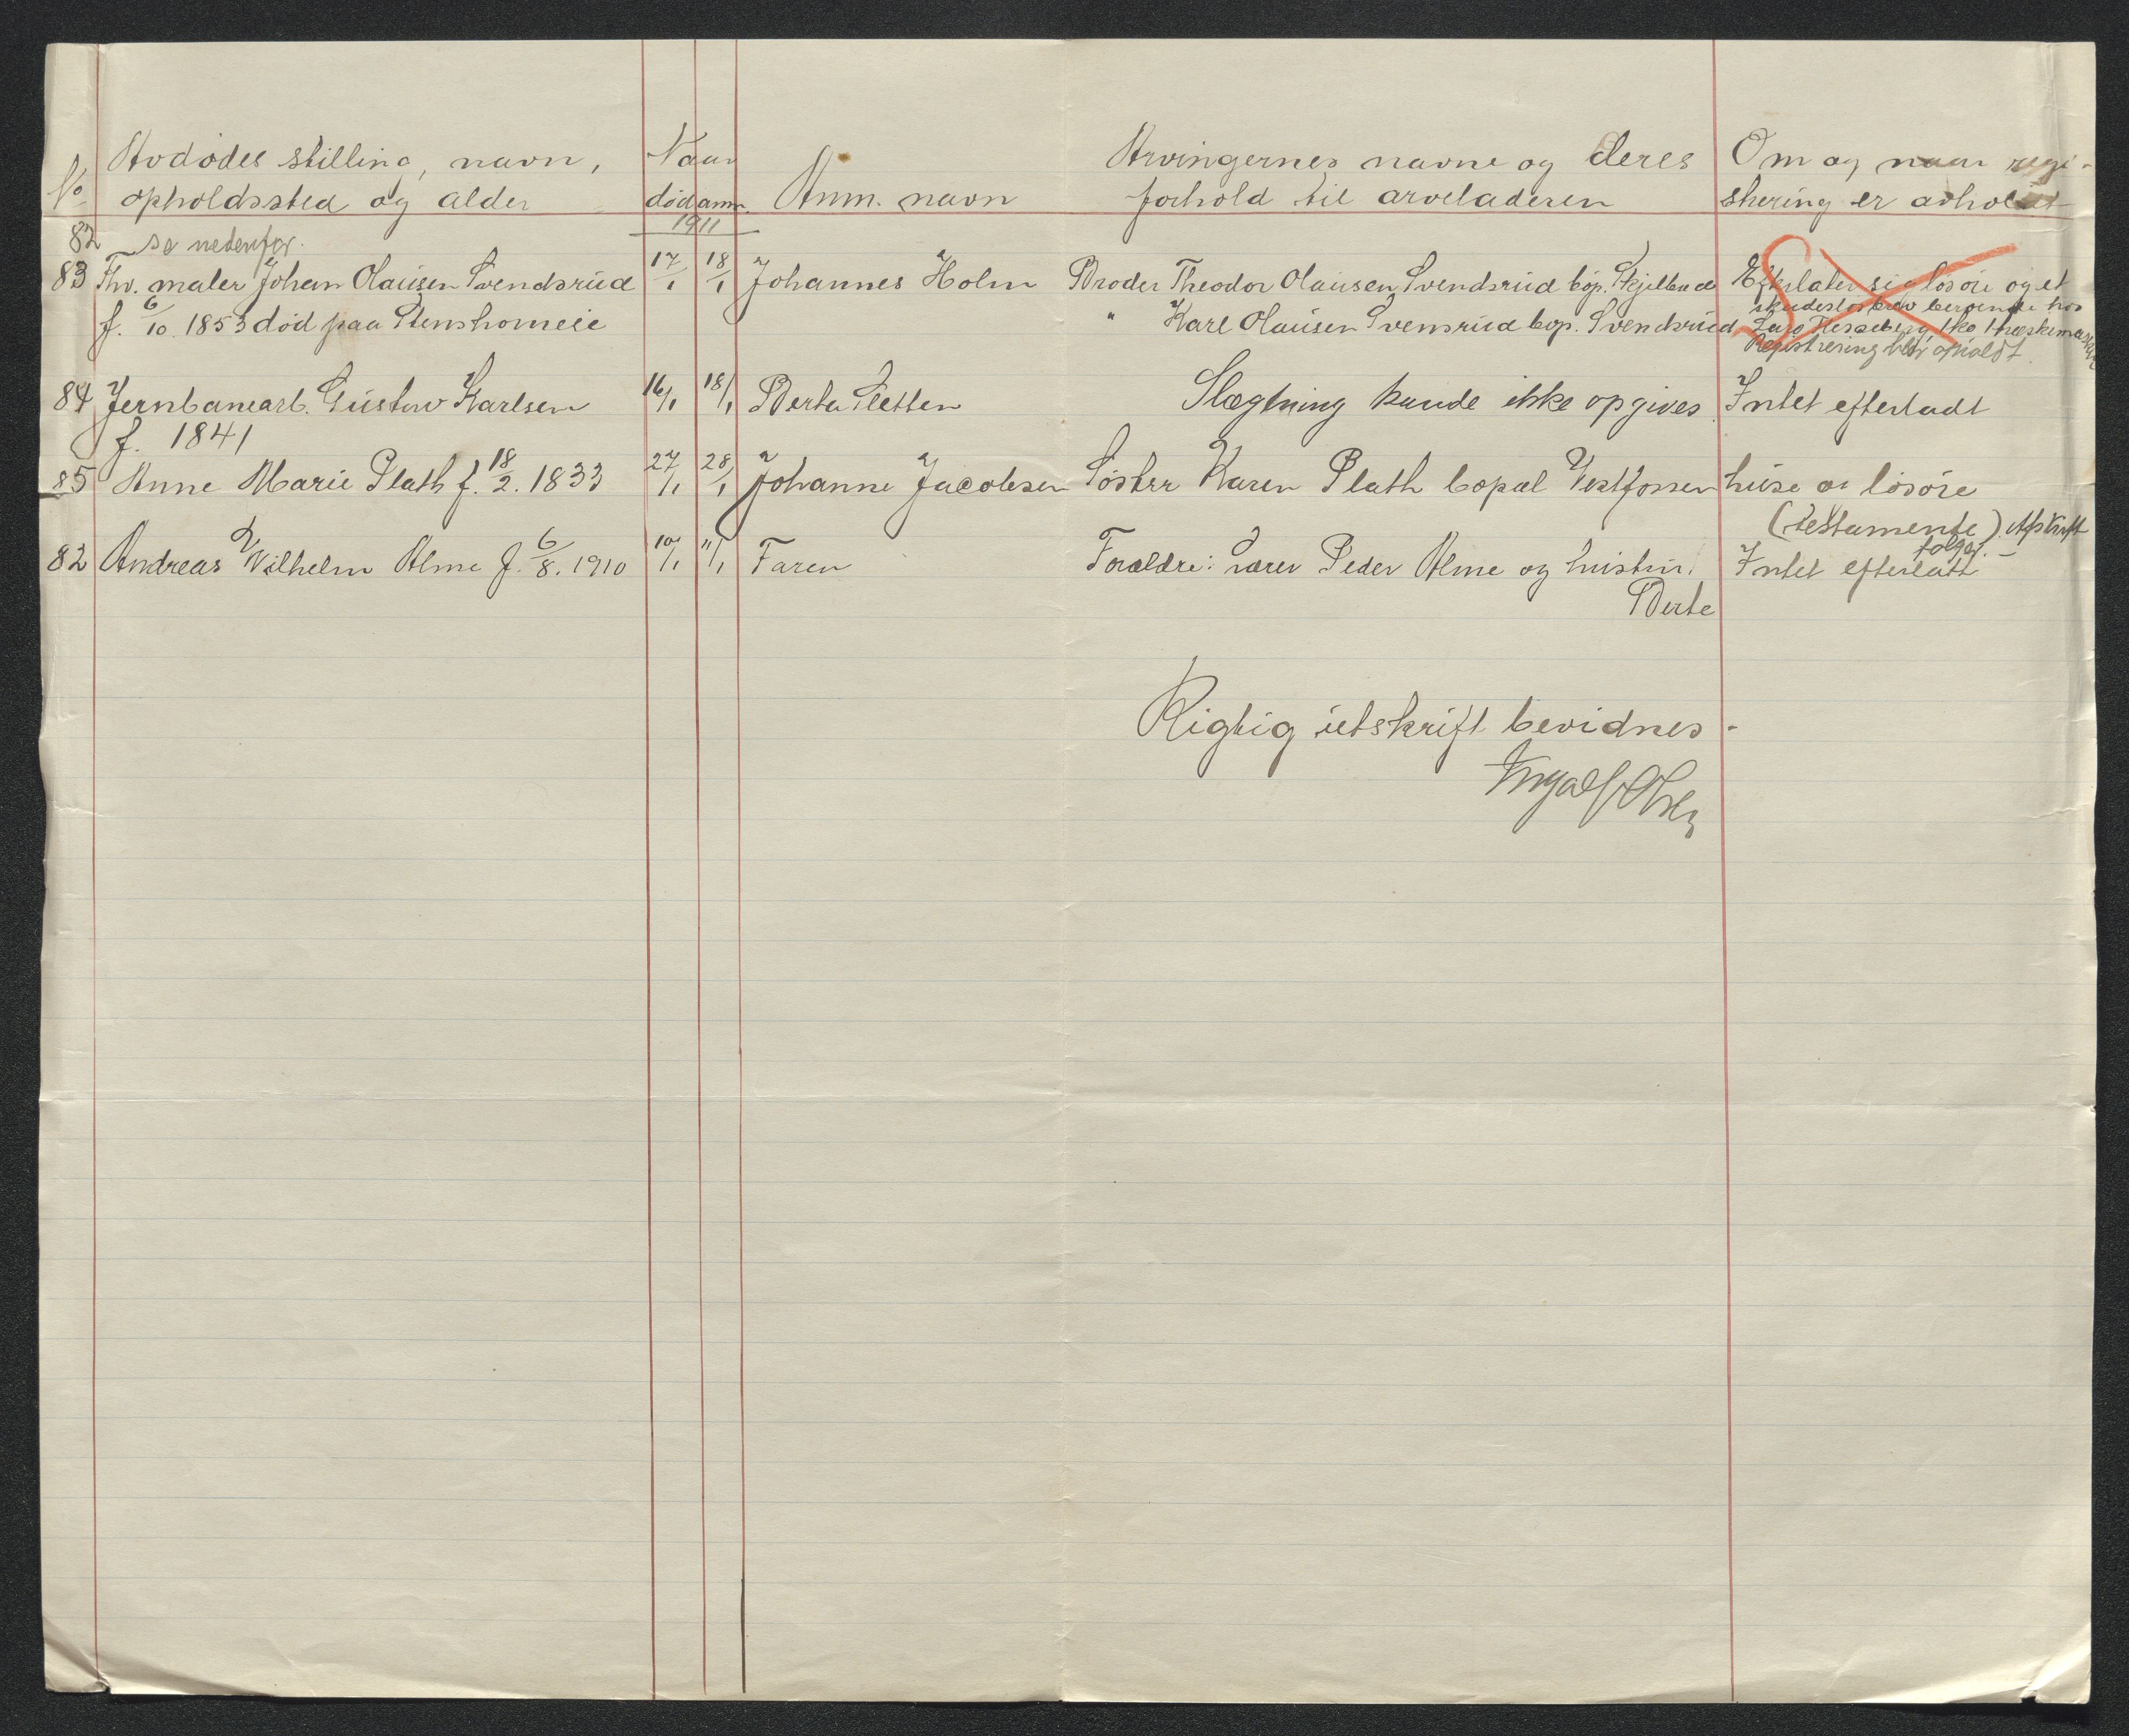 No Avdødes stilling, navn, opholdssted og alder
Naar død anm.
Anm. navn
Arvingernes navne og deres forhold til arveladeren
Om og naar registrering er avholdt
1911
82 se nedenfor.
83 Fhv. maler Johan Olausen Svendsrud 17/1 18/1 Johannes Holm Broder Theodor Olausen Svendsrud bop. Skjelbred Efterlater sig løsøre og et
f. 6/10. 1853 død paa Stenshorneie " Karl Olausen Svensrud bop. Svendsrud
skadesløsbrev beroende hos
Registrering blir avholdt
84 Jernbanearb. Gustav Karlsen 16/1 18/1 Berta Sletten Slægtning kunde ikke opgives. Intet efterladt
f. 1841
85 Anne Marie Plath f. 18/2. 1833 27/1 28/1 Johanne Jacobsen Søster Karen Plath bopæl Vestfossen huse og løsøre
(testamente) Afskrift
følger. –
82 Andreas Vilhelm Alme f. 6/8. 1910 10/1 11/1 Faren Forældre: Peder Alme og hustru. Intet efterlatt
Berte
Rigtig utskrift bevidnes.
Ingolf Olsen